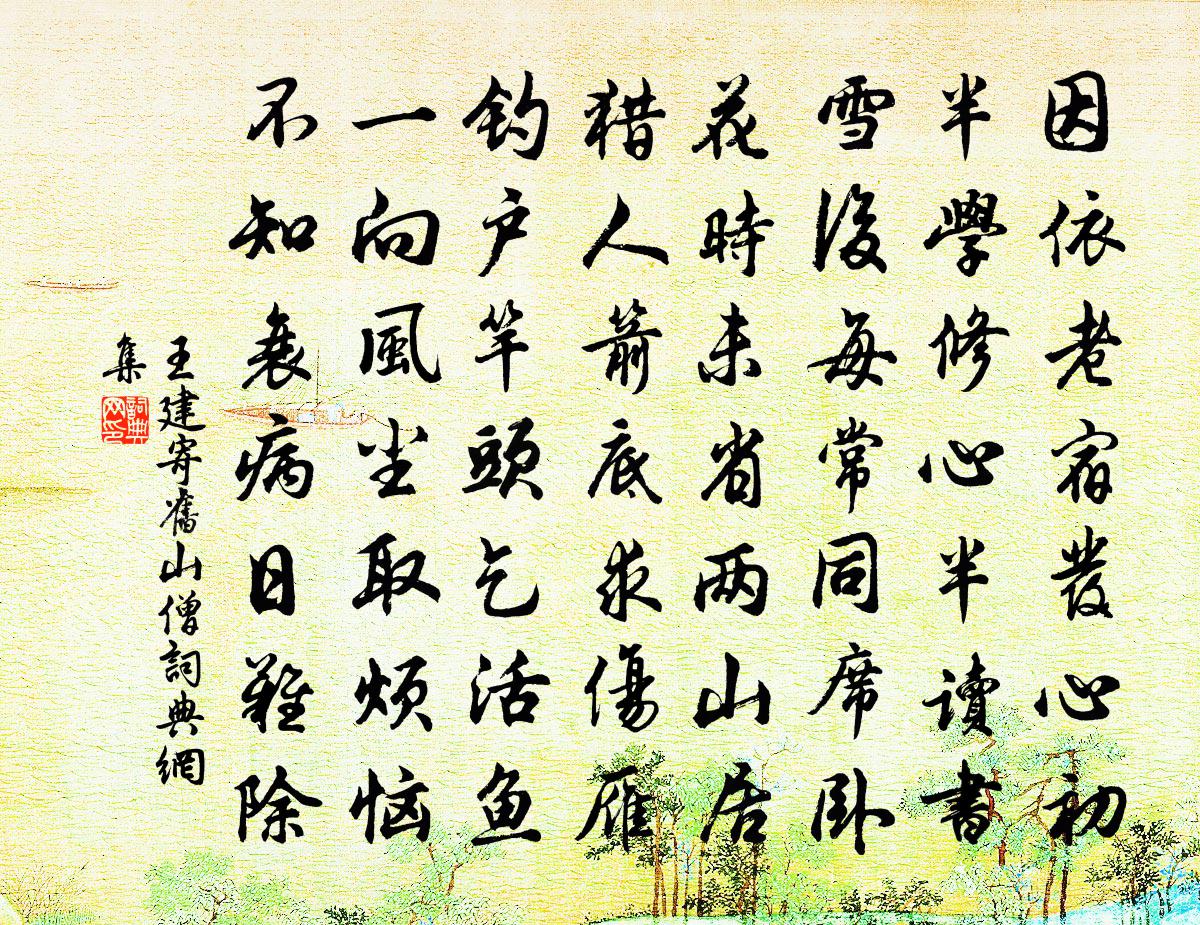 因依老宿發心初
半學修心半讀書
雪後每常同席卧
花時未省两山居
猎人箭底求傷雁
钓户竿頭乞活鱼
一向風尘取烦恼
不知衰病日難除
王建寄舊山僧詞典網
集
詞典
网印